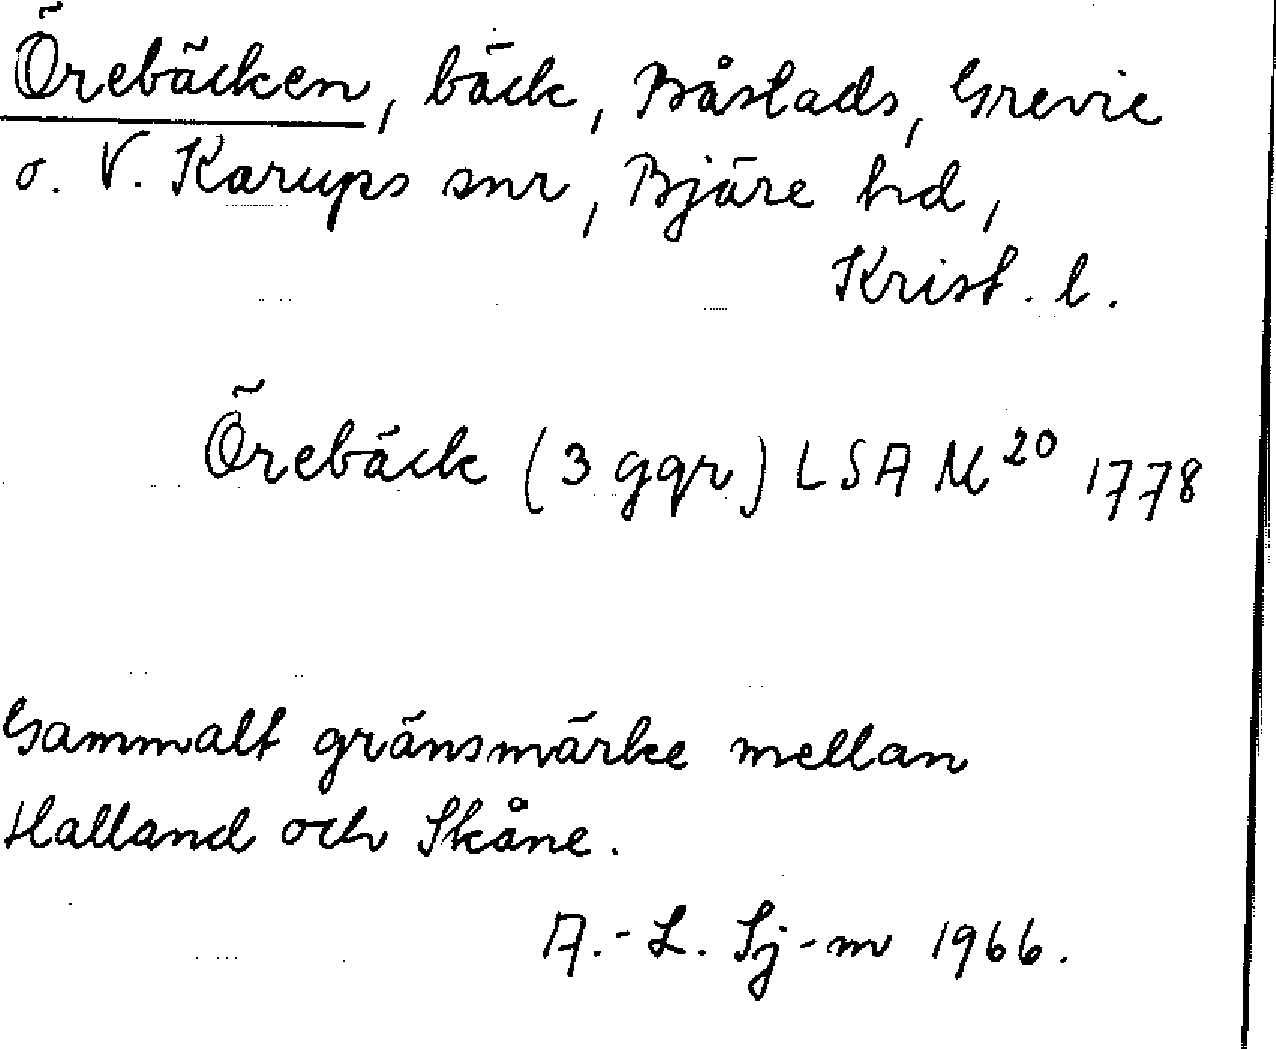 Örebäcken, bäck, Båstads, Grevie
o. V. Karups snr, Bjäre hd,
Krist. l.
Örebäck (3 ggr) LSA M²⁰ 1778
Gammalt gränsmärke mellan
Halland och Skåne.
A.-L. Sj-m 1966.